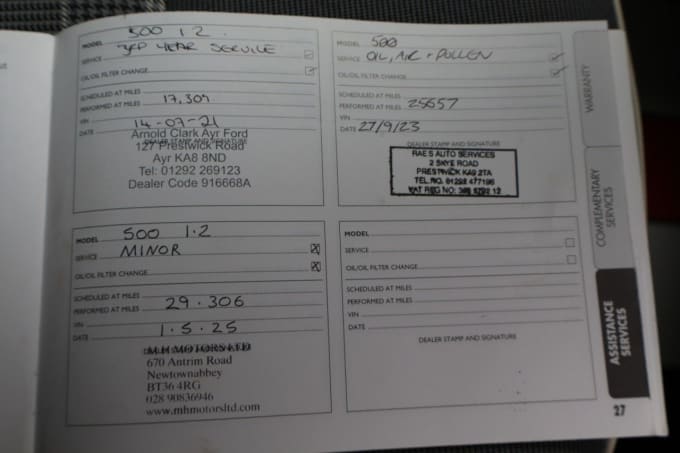 MODEL 500 1.2
SERVICE 3RD YEAR SERVICE
OIL/OIL FILTER CHANGE
SCHEDULED AT MILES
PERFORMED AT MILES 17,309
VIN
DATE 14-07-21
DEALER STAMP AND SIGNATURE
Arnold Clark Ayr Ford
127 Prestwick Road
Ayr KA8 8ND
Tel: 01292 269123
Dealer Code 916668A
MODEL 500
SERVICE OIL, AIR + POLLEN
OIL/OIL FILTER CHANGE
SCHEDULED AT MILES
PERFORMED AT MILES 25657
VIN
DATE 27/9/23
DEALER STAMP AND SIGNATURE
RAES AUTO SERVICES
2 SKYE ROAD
PRESTWICK KA9 2TA
TEL.NO. 01292 477196
VAT REG NO:
MODEL 500 1.2
SERVICE MINOR
OIL/OIL FILTER CHANGE
SCHEDULED AT MILES
PERFORMED AT MILES 29.306
VIN
DATE 1.5.25
M H MOTORS LTD
670 Antrim Road
Newtownabbey
BT36 4RG
028 90836946
www.mhmotorsltd.com
MODEL
SERVICE
OIL/OIL FILTER CHANGE
SCHEDULED AT MILES
PERFORMED AT MILES
VIN
DATE
DEALER STAMP AND SIGNATURE
WARRANTY
COMPLEMENTARY
SERVICES
ASSISTANCE
SERVICES
27